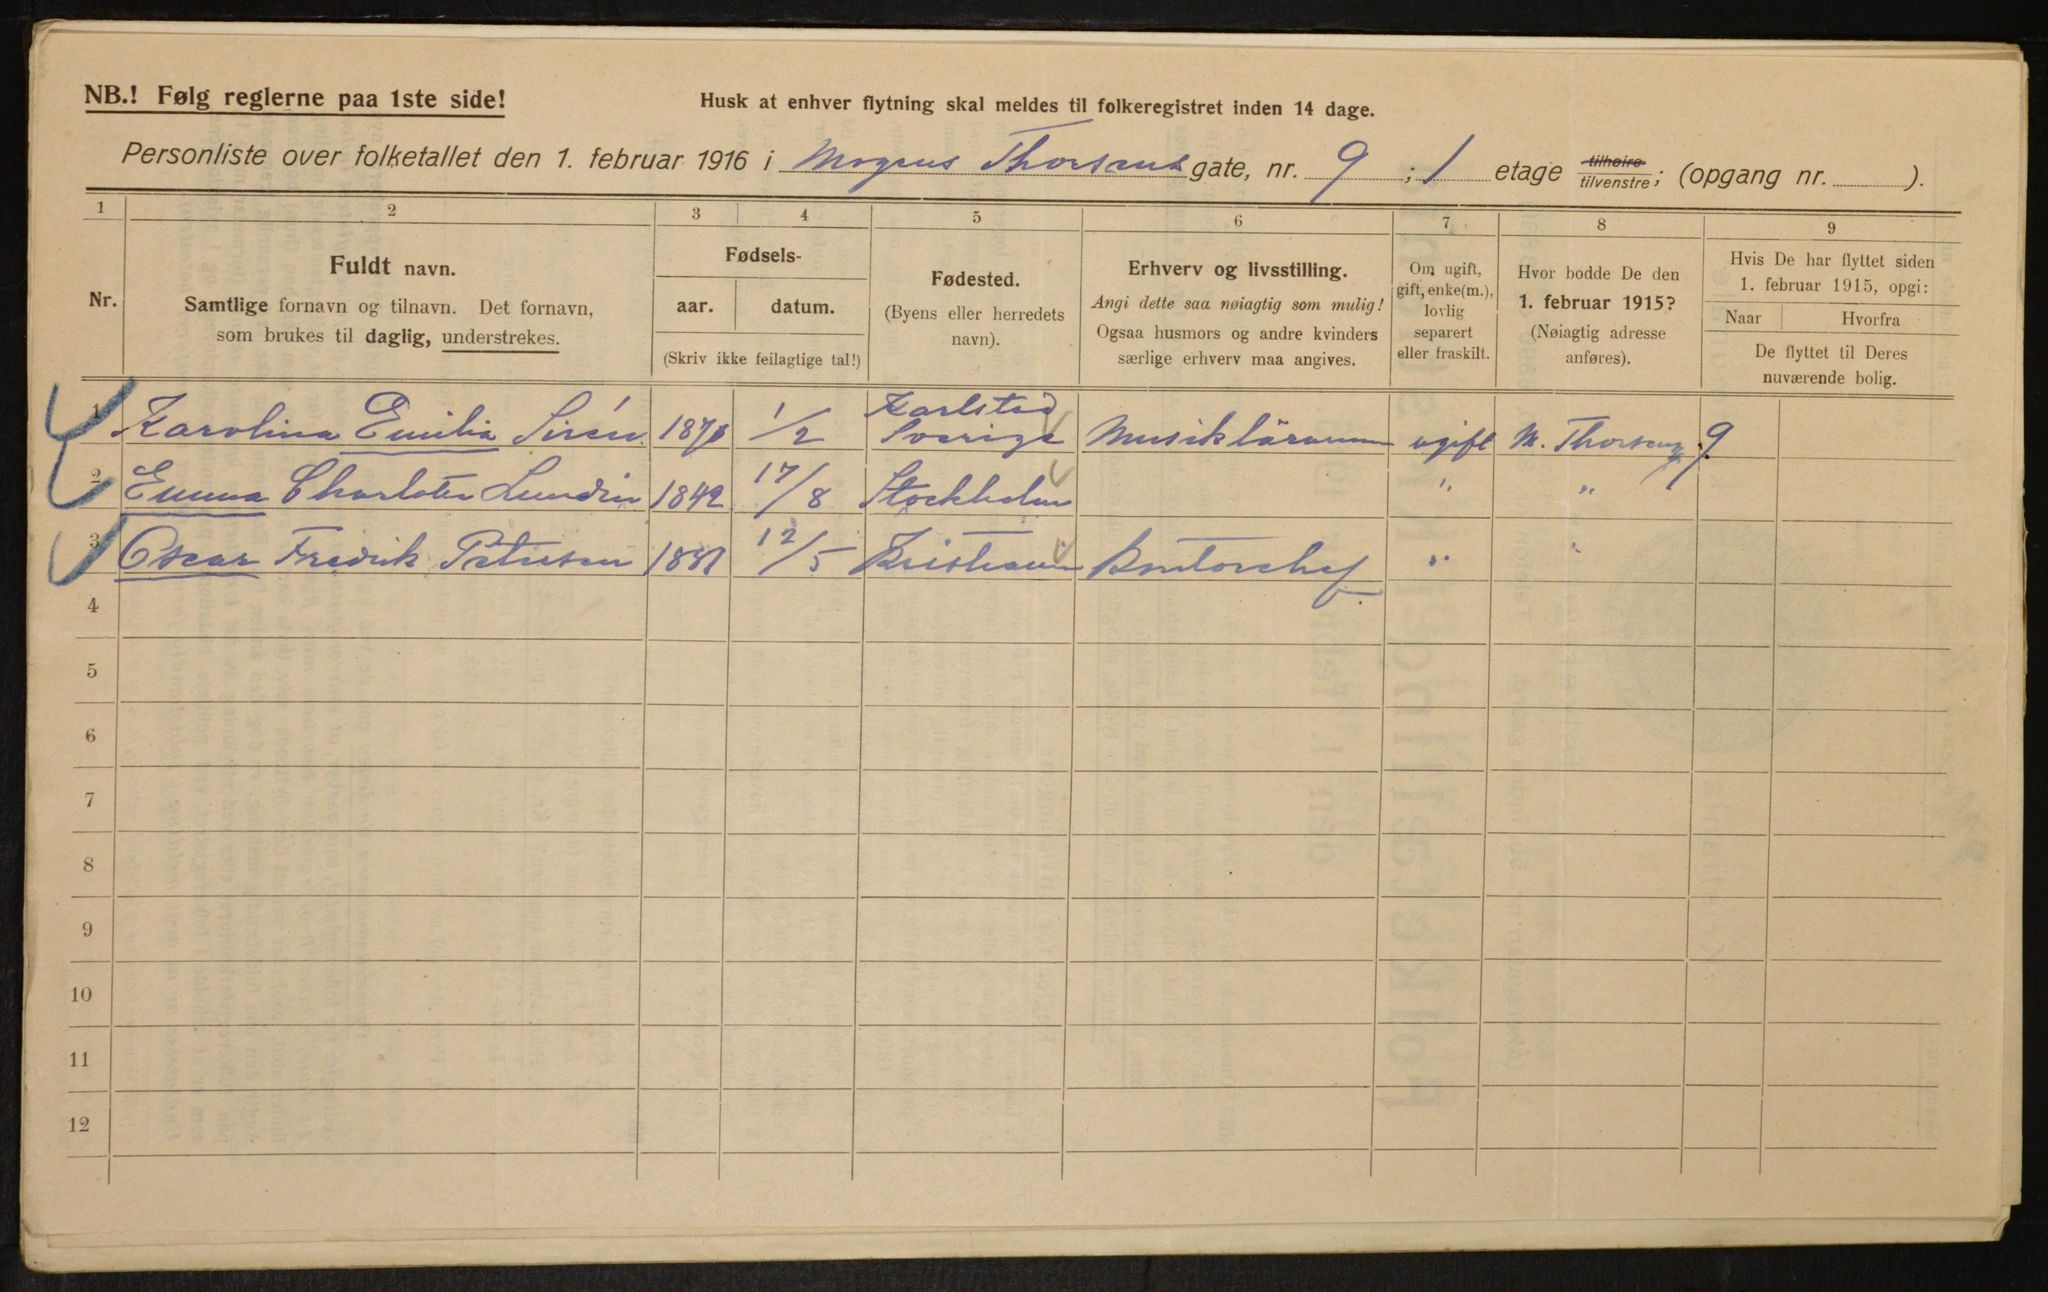 NB.! Følg reglerne paa 1ste side!
Husk at enhver flytning skal meldes til folkeregistret inden 14 dage.
Personliste over folketallet den 1. februar 1916 i Mogens Thorsens gate, nr. 9 ; 1 etage tilhøire tilvenstre; (opgang nr. ).
1 2 3 4 5 6 7 8 9
Nr.
Fuldt navn.
Samtlige fornavn og tilnavn. Det fornavn,
som brukes til daglig, understrekes.
Fødsels-
aar. datum.
(Skriv ikke feilagtige tal!)
Fødested.
(Byens eller herredets
navn).
Erhverv og livsstilling.
Angi dette saa nøiagtig som mulig!
Ogsaa husmors og andre kvinders
særlige erhverv maa angives.
Om ugift,
gift, enke(m.),
lovlig
separert
eller fraskilt.
Hvor bodde De den
1. februar 1915?
(Nøiagtig adresse
anføres).
Hvis De har flyttet siden
1. februar 1915, opgi:
Naar Hvorfra
De flyttet til Deres
nuværende bolig.
1 Karolina Emilia Sirén 1/2 Karlstad Sverige Musiklärarinna ugift M. Thorsens g. 9
2 Emma Charlotta Lundin 1842 17/8 Stockholm " "
3 Oscar Fredrik Petersen 12/5 Kristiania Kontorchef " "
4
5
6
7
8
9
10
11
12